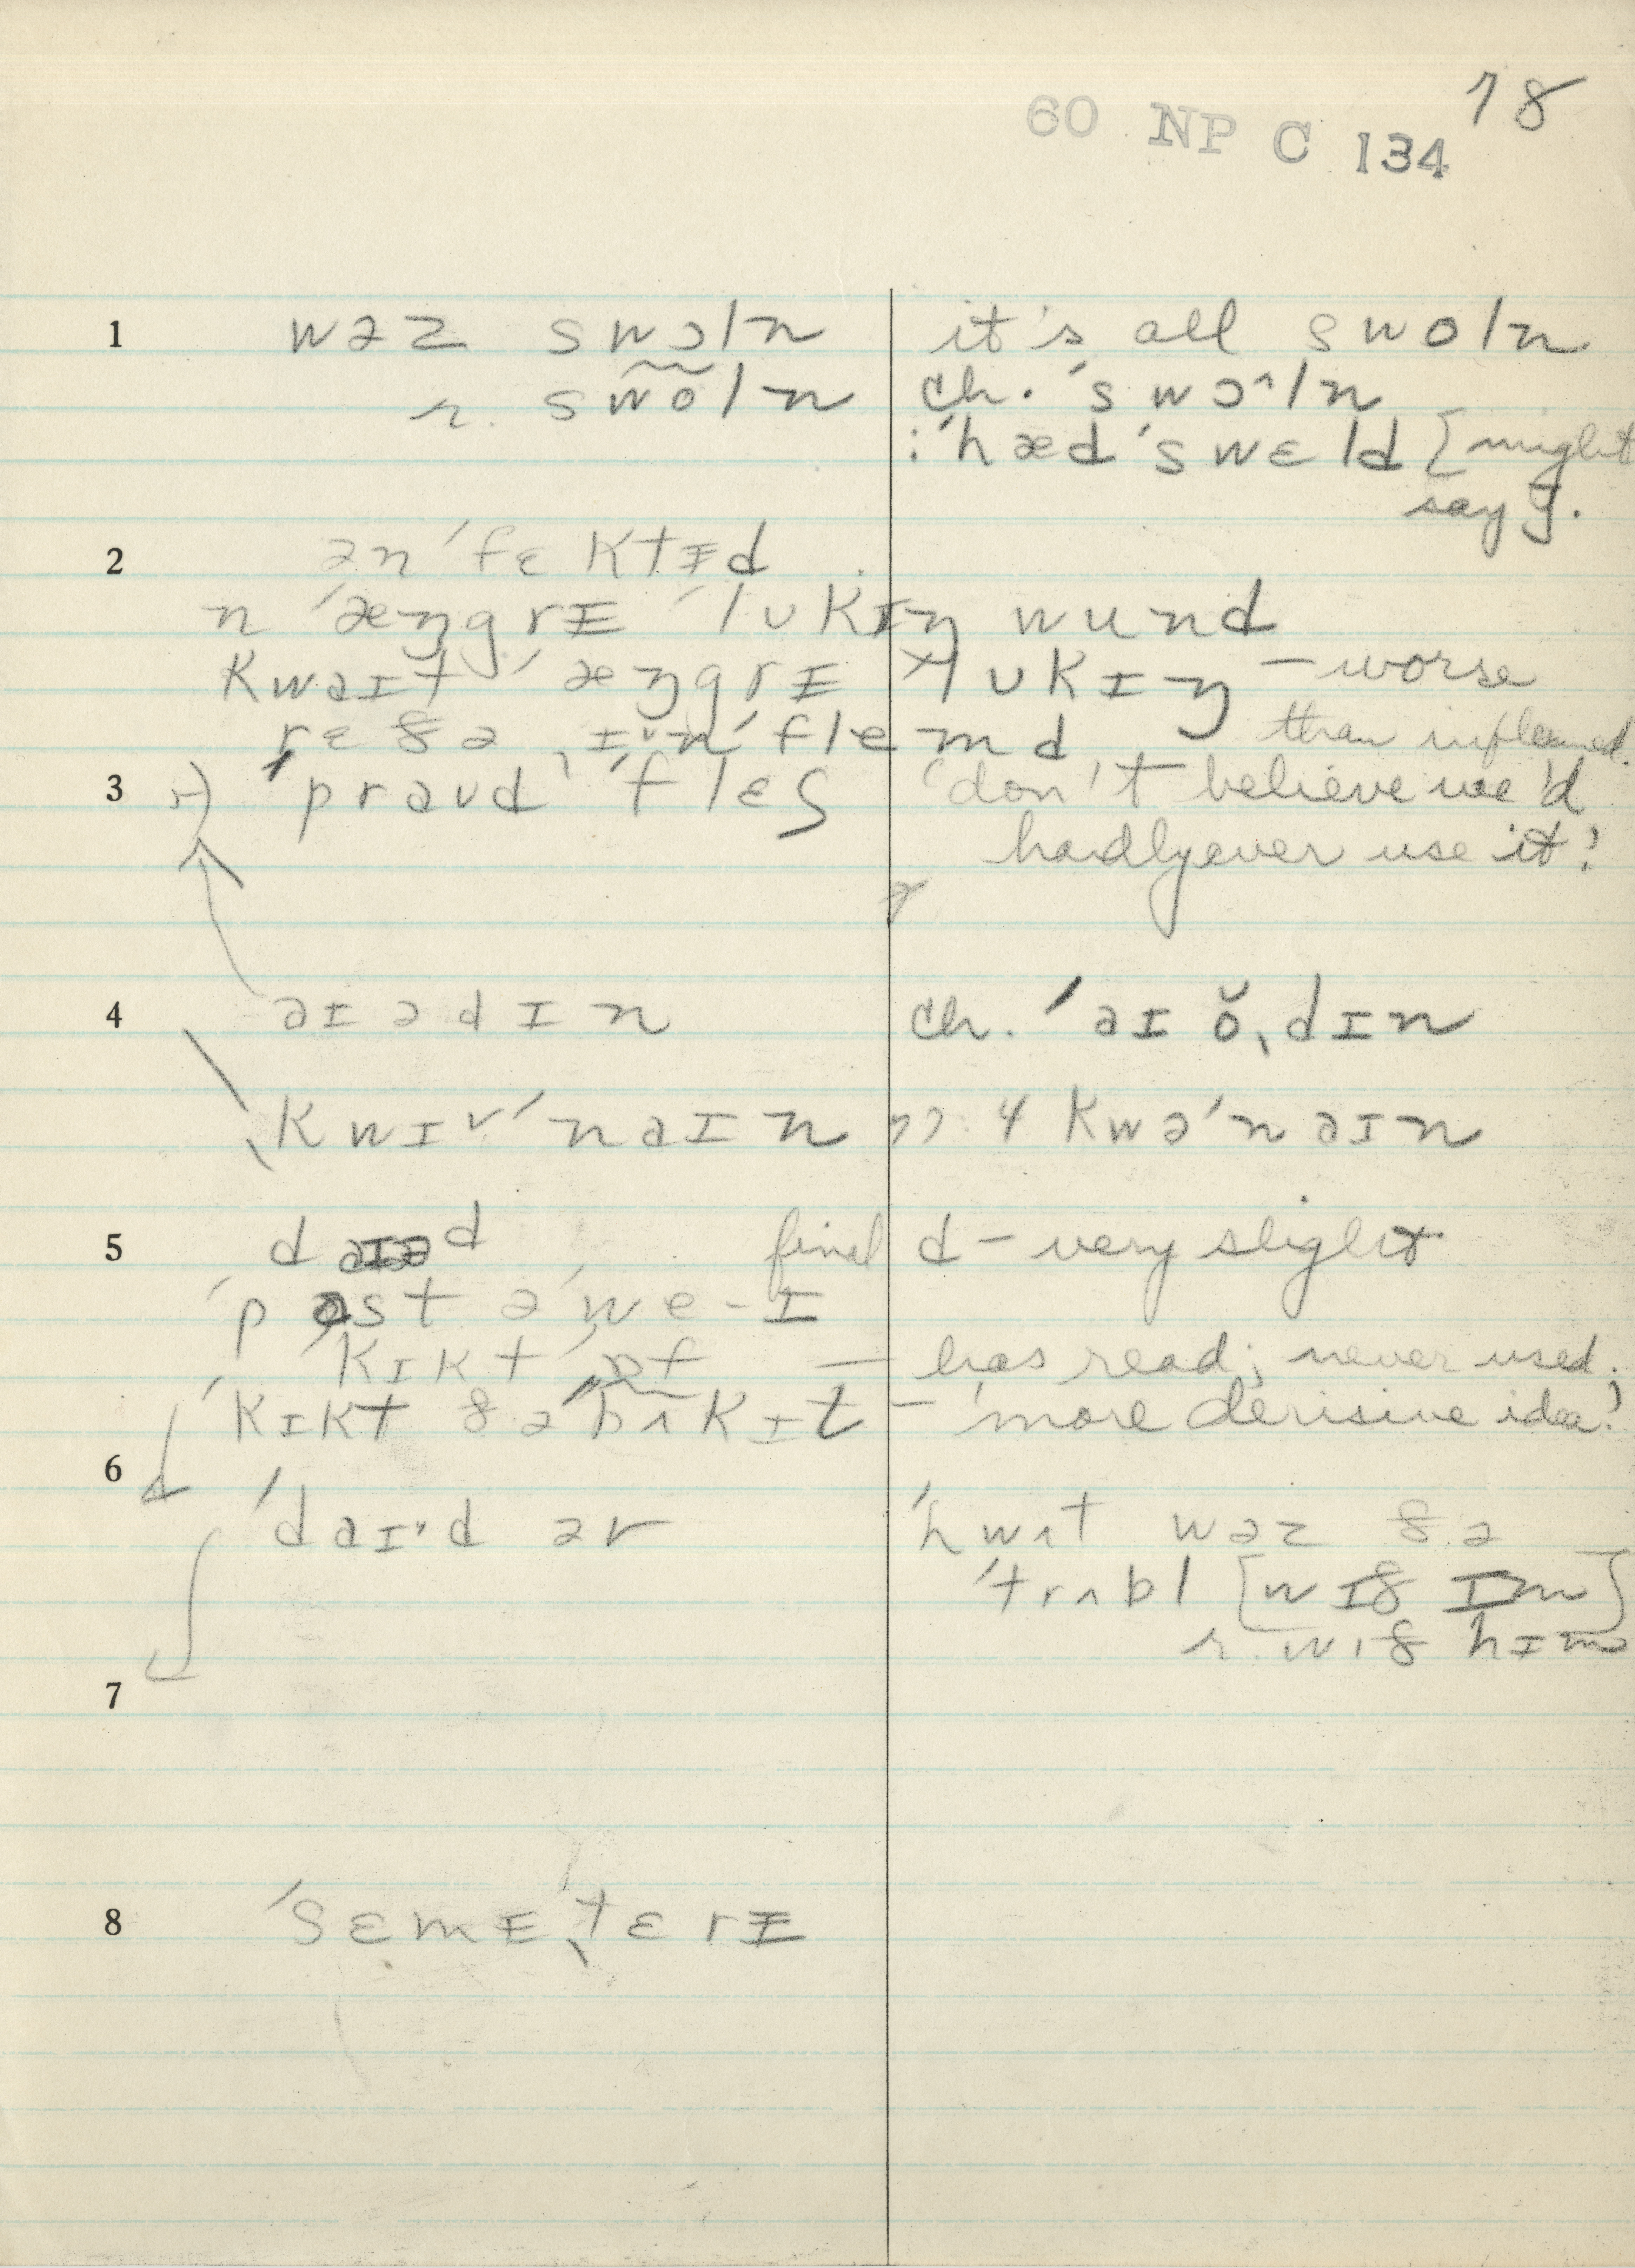 78
60 NP C 134
1 wəz swɔln it's all swoln
r. sw̃õln ch. ˈswɔ^ln
: ˈhæd ˈswɛld [might
say].
2 ənˈfɛktɨd
n ˈæŋgrɨ ˈlʊkɪŋ wund
kwaɪt ˈæŋgrɨ lʊkɪŋ – worse
than inflamed.
3 ˈpraʊd ˈflɛʃ 'don't believe we'd
hardly ever use it!'
4 aɪədɪn ch. ˈaɪŏˌdɪn
ˌkwɪˈnaɪn kwəˈnaɪn
5 daɪəd final d – very slight
ˈpast əˈwe-ɪ
ˈkɪkt ˈɒf — has read; never used.
ˈkɪkt ðə ˈbʌkɪt – 'more derisive idea!'
6 ˈdaɪd ər ˈhwʌt wəz ðə
ˈtrʌbl [wɪð ɪm]
r. wɪð hɪm
7
8 ˈsɛmɨˌtɛrɨ